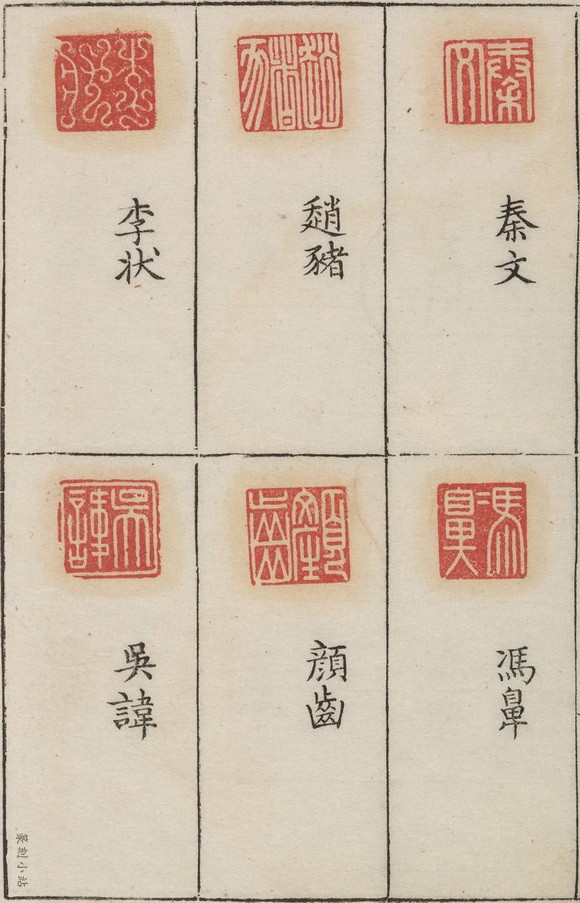 秦文
趙豬
李状
馮鼻
顔齒
吳諱
篆刻小站